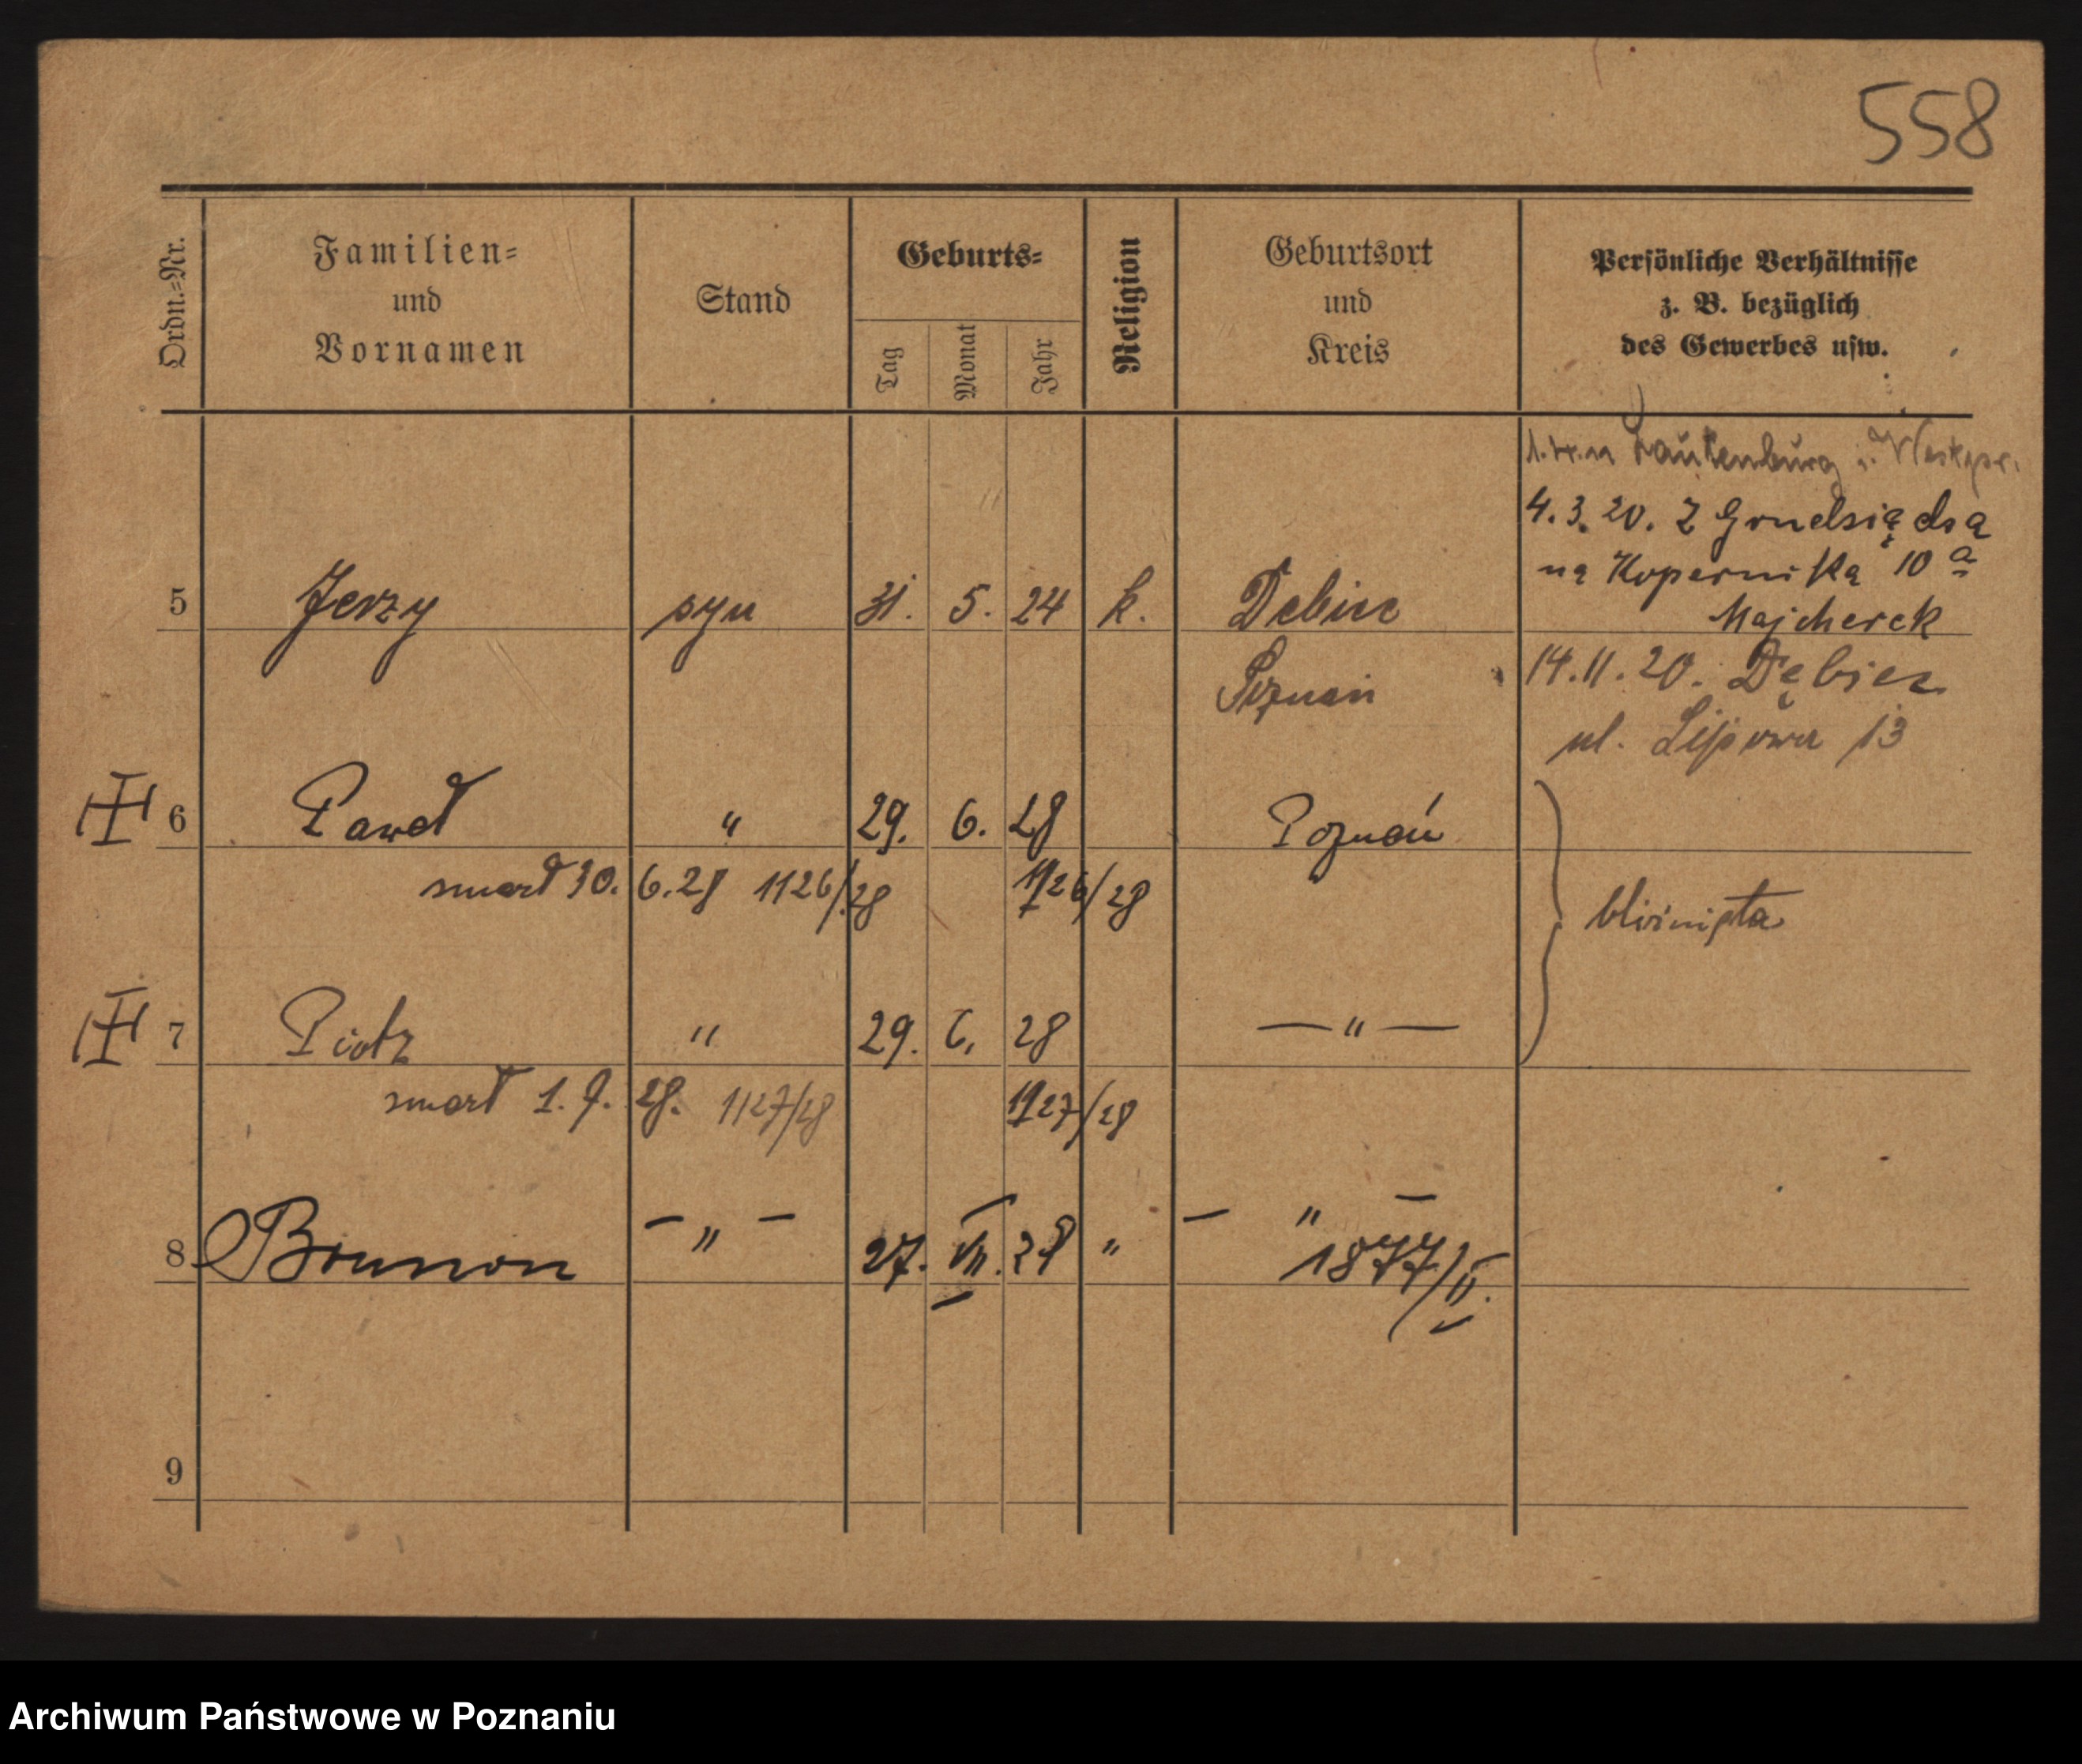 558
Ordn.-Nr.
Familien-
und
Vornamen
Stand
Geburts-
Tag
Monat
Jahr
Religion
Geburtsort
und
Kreis
Persönliche Verhältnisse
z. B. bezüglich
des Gewerbes usw.
Lautenburg i. Westpr.
4.3.20. z Grudsiądsa
na Kopernika 10 a
Majcherek
5 Jerzy syn 31. 5. 24 k. Debiec
Poznań
14.11.20. Dębiec
ul. Lipowa 13
6 Paweł " 29. 6. 28 Poznań
smarł 30. 6. 28 1126/28 1126/28
bliźnięta
7 Piotr " 29. 6. 28 — " —
smarł 1. 7. 28. 1127/28 1127/28
8 Brunon — " — 27. VII. 28 " — " —
1877/II.
9
Archiwum Państwowe w Poznaniu